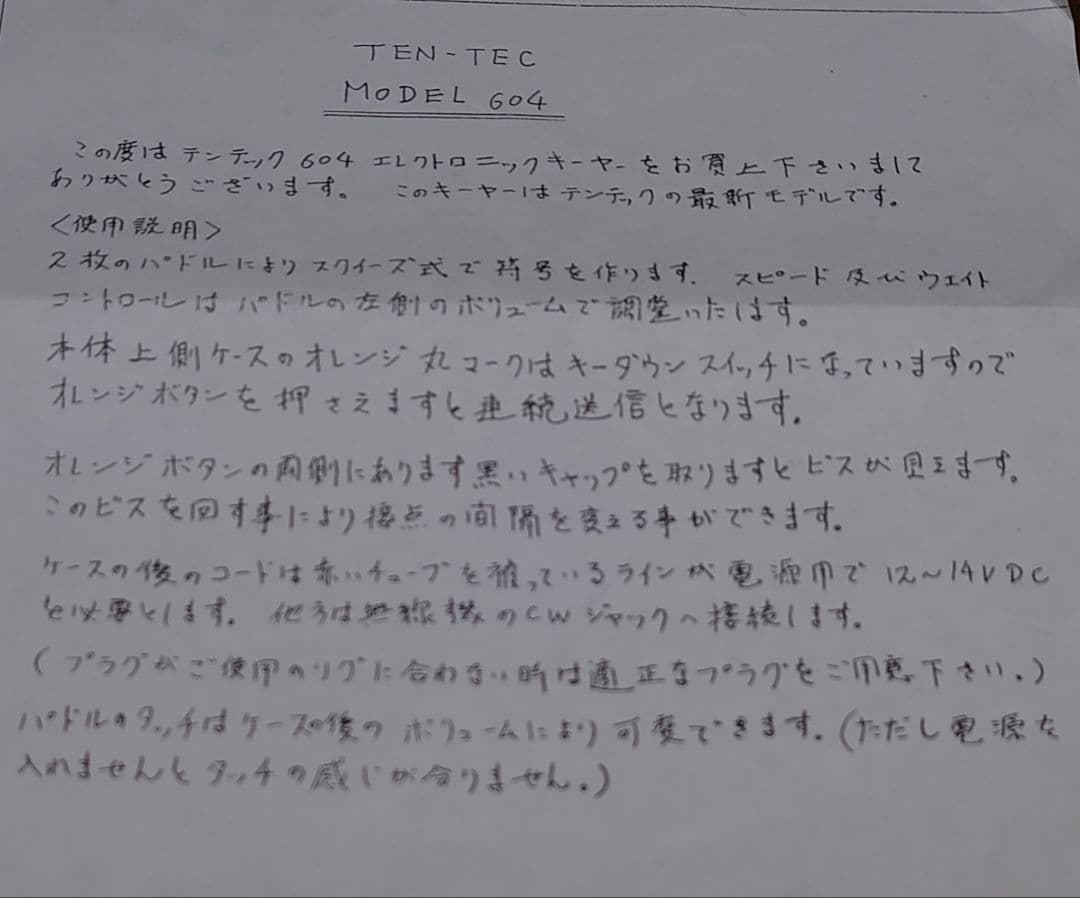 TEN-TEC
MODEL 604
この度は テンテック 604 エレクトロニックキーヤーをお買上下さいまして
ありがとうございます。 このキーヤーはテンテックの最新モデルです。
<使用説明>
2枚のパドルにより スクイーズ式で 符号を作ります. スピード 及び ウェイト
コントロールは パドルの左側のボリュームで調整いたします。
本体上側ケースのオレンジ丸マークはキーダウンスイッチになっていますので
オレンジボタンを押さえますと連続送信となります.
オレンジボタンの両側にあります黒いキャップを取りますとビスが見えます。
このビスを回す事により接点の間隔を変える事ができます.
ケースの後のコードは赤いチューブを被っているラインが電源用で 12〜14V DC
を必要とします。 他方は無線機のCWジャックへ接続します。
(プラグがご使用のリグに合わない時は適正なプラグをご用意下さい.)
パドルのタッチはケースの後の ボリュームにより可変できます.(ただし電源を
入れませんと タッチの感じが分りません.)